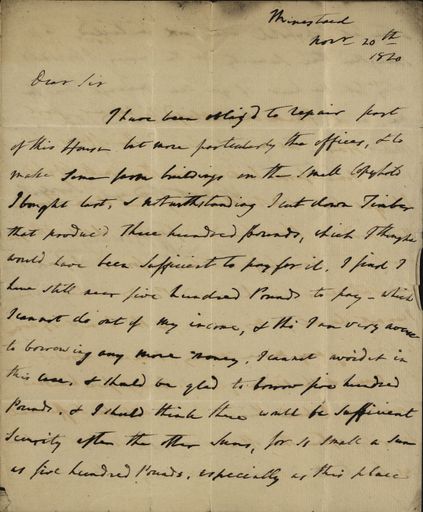 Minestead
Novr 20th
1820
Dear Sir
I have been oblig'd to repair part
of this House but more particularly the offices, & to
make some farm buildings on the small Copyhold
I bought last, & notwithstanding I cut down Timber
that produc'd three hundred pounds, which I thought
would have been sufficient to pay for it, I find I
have still near five hundred Pounds to pay - which
I cannot do out of my income, & tho' I am very averse
to borrowing any more money, I cannot avoid it in
this case, & should be glad to borrow five hundred
Pounds, & I should think there would be sufficient
security after the other sums, for so small a sum
as five hundred Pounds, especially as this place